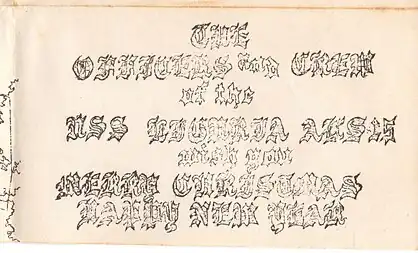 THE
OFFICERS and CREW
of the
USS LIGURIA AKS 15
wish you
MERRY CHRISTMAS
HAPPY NEW YEAR